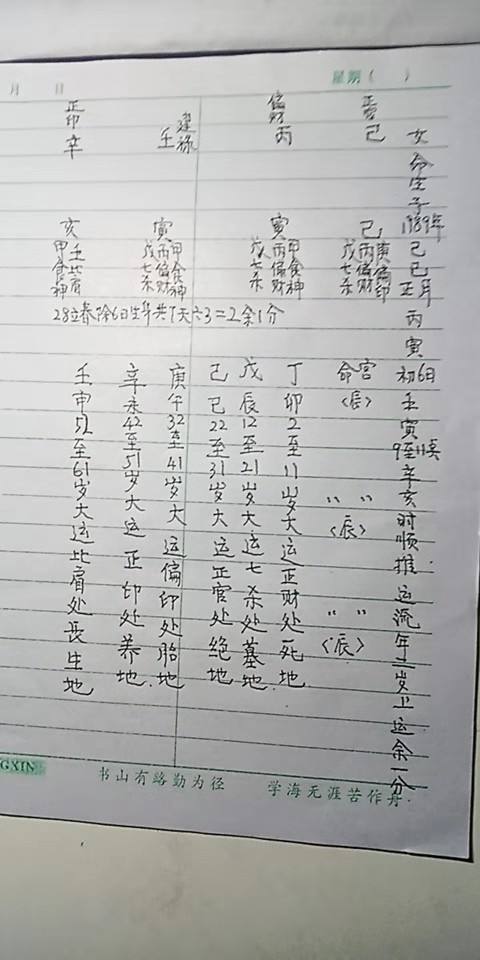 月 日
星期( )
女命生于1989年己巳正月丙寅初6日壬寅9至11点辛亥时顺推运流年二岁上运余一分
己
偏财
丙
建禄
壬
正印
辛
己
庚偏印
丙偏财
戊七杀
寅
甲食神
丙偏财
戊七杀
寅
甲食神
丙偏财
戊七杀
亥
壬比肩
甲食神
28立春除6日生年共7天六3=2余1分
命宫
〈辰〉
〃 〃
〈辰〉
〃 〃
〈辰〉
丁卯2至11岁大运正财处死地
戊辰12至21岁大运七杀处墓地
己巳22至31岁大运正官处绝地
庚午32至41岁大运偏印处胎地
辛未42至51岁大运正印处养地
壬申52至61岁大运比肩处长生地
GXIN
书山有路勤为径
学海无涯苦作舟